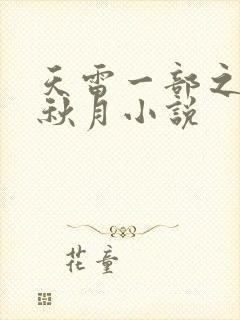 天雷一部之
秋月小說
花童